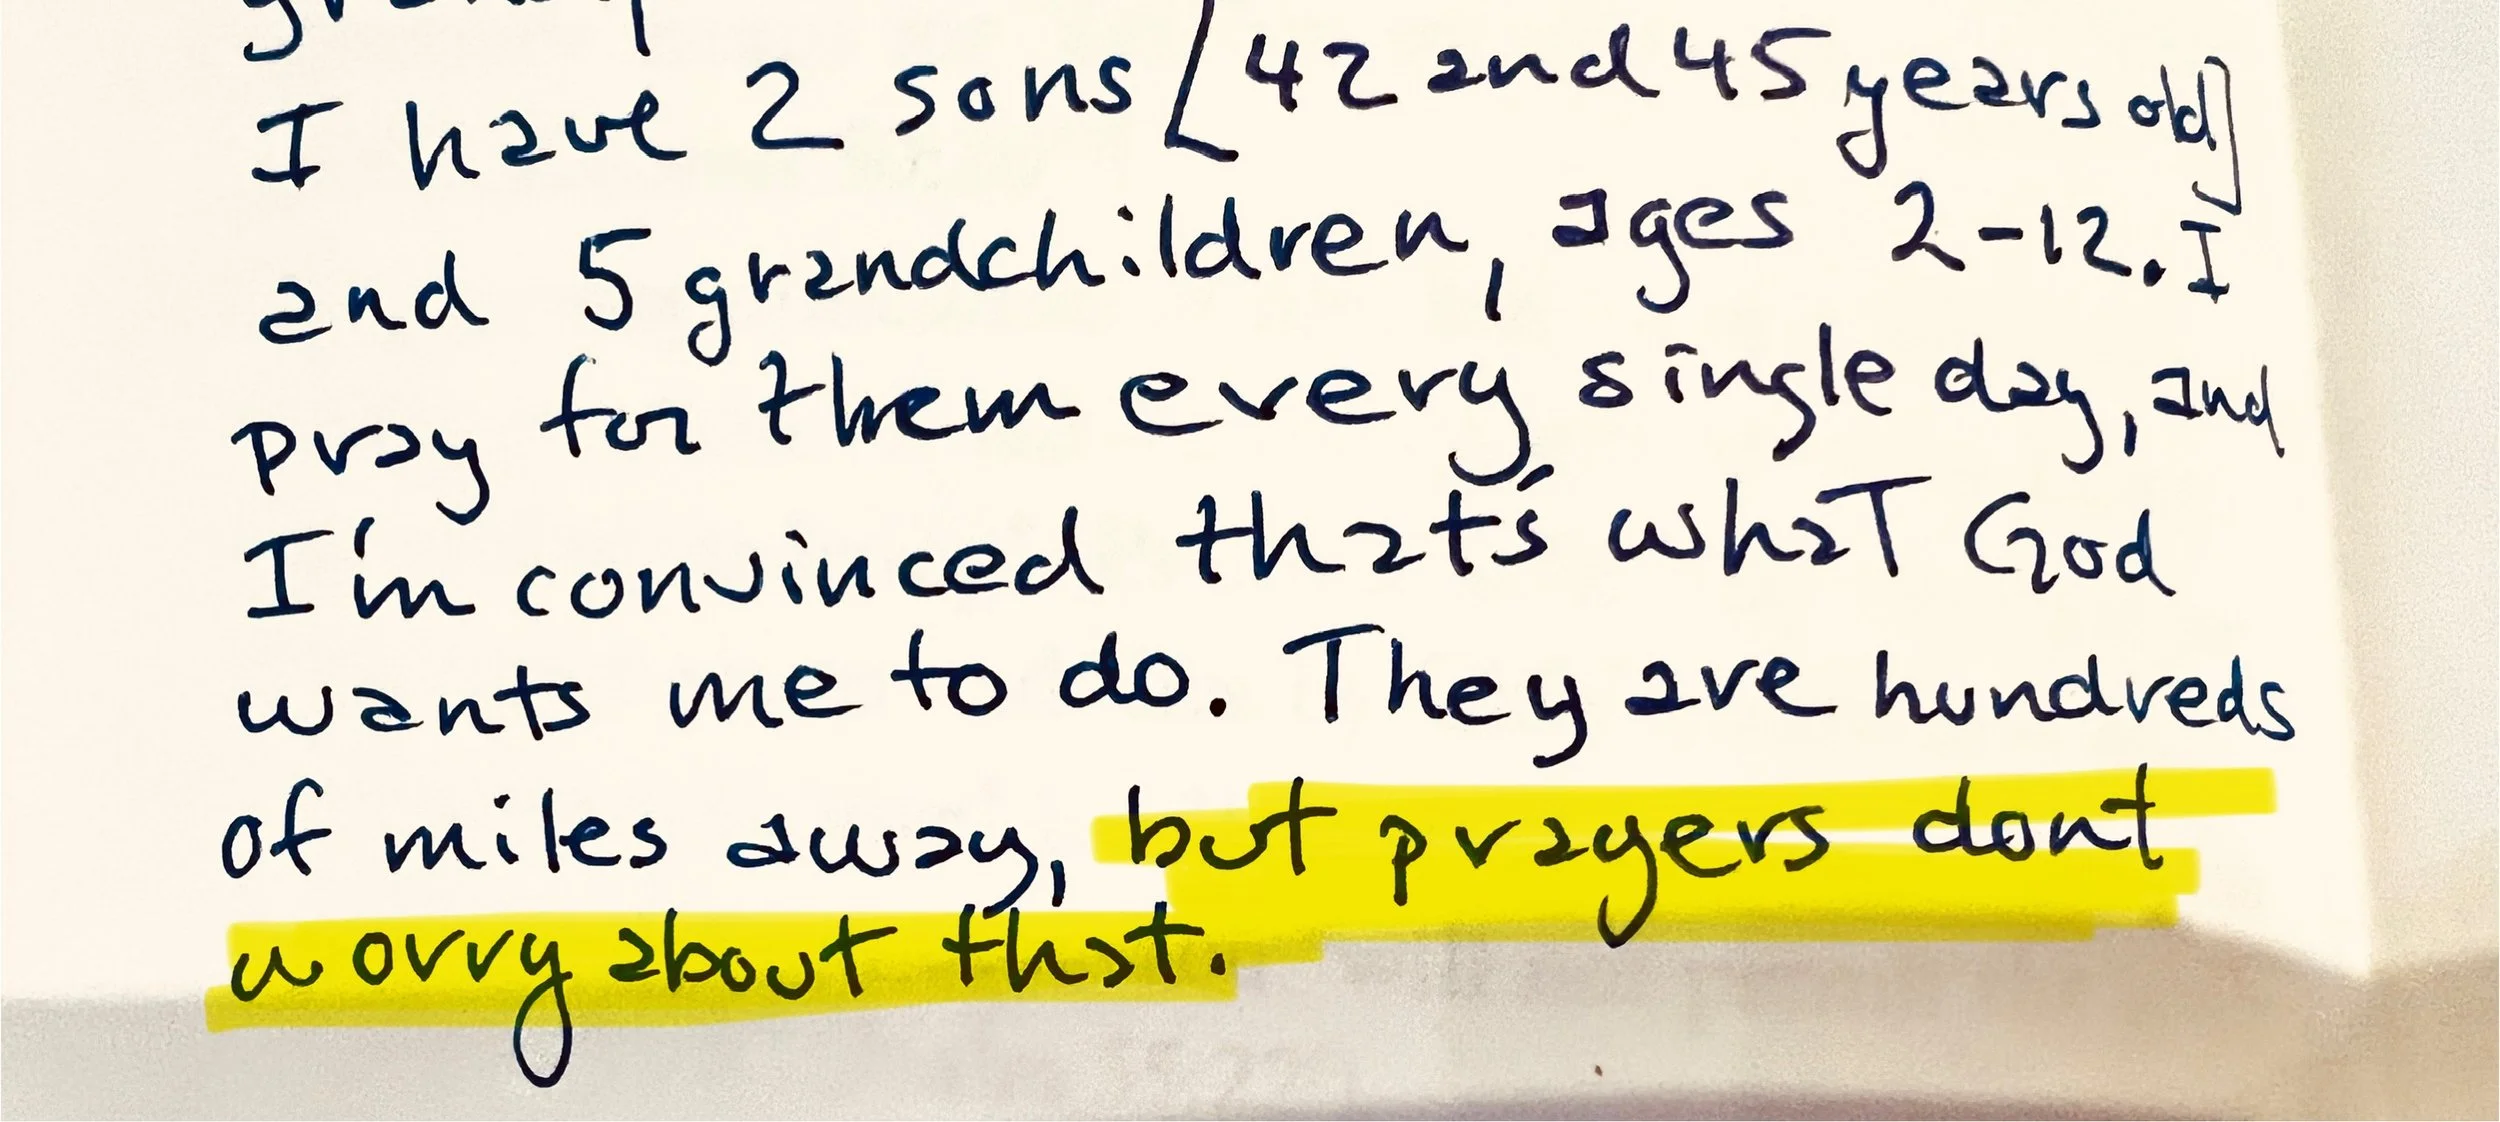 I have 2 sons [42 and 45 years old]
and 5 grandchildren, ages 2-12. I
pray for them every single day, and
I'm convinced that's what God
wants me to do. They are hundreds
of miles away, but prayers dont
worry about that.